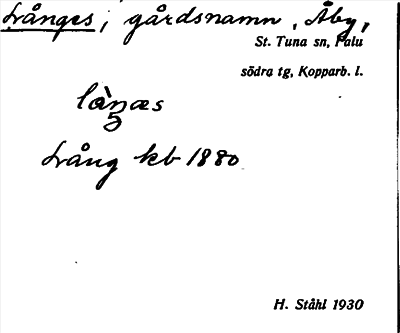 Långes, gårdsnamn, Åby,
St. Tuna sn, Falu
södra tg, Kopparb. l.
Lång kb 1880
H. Ståhl 1930